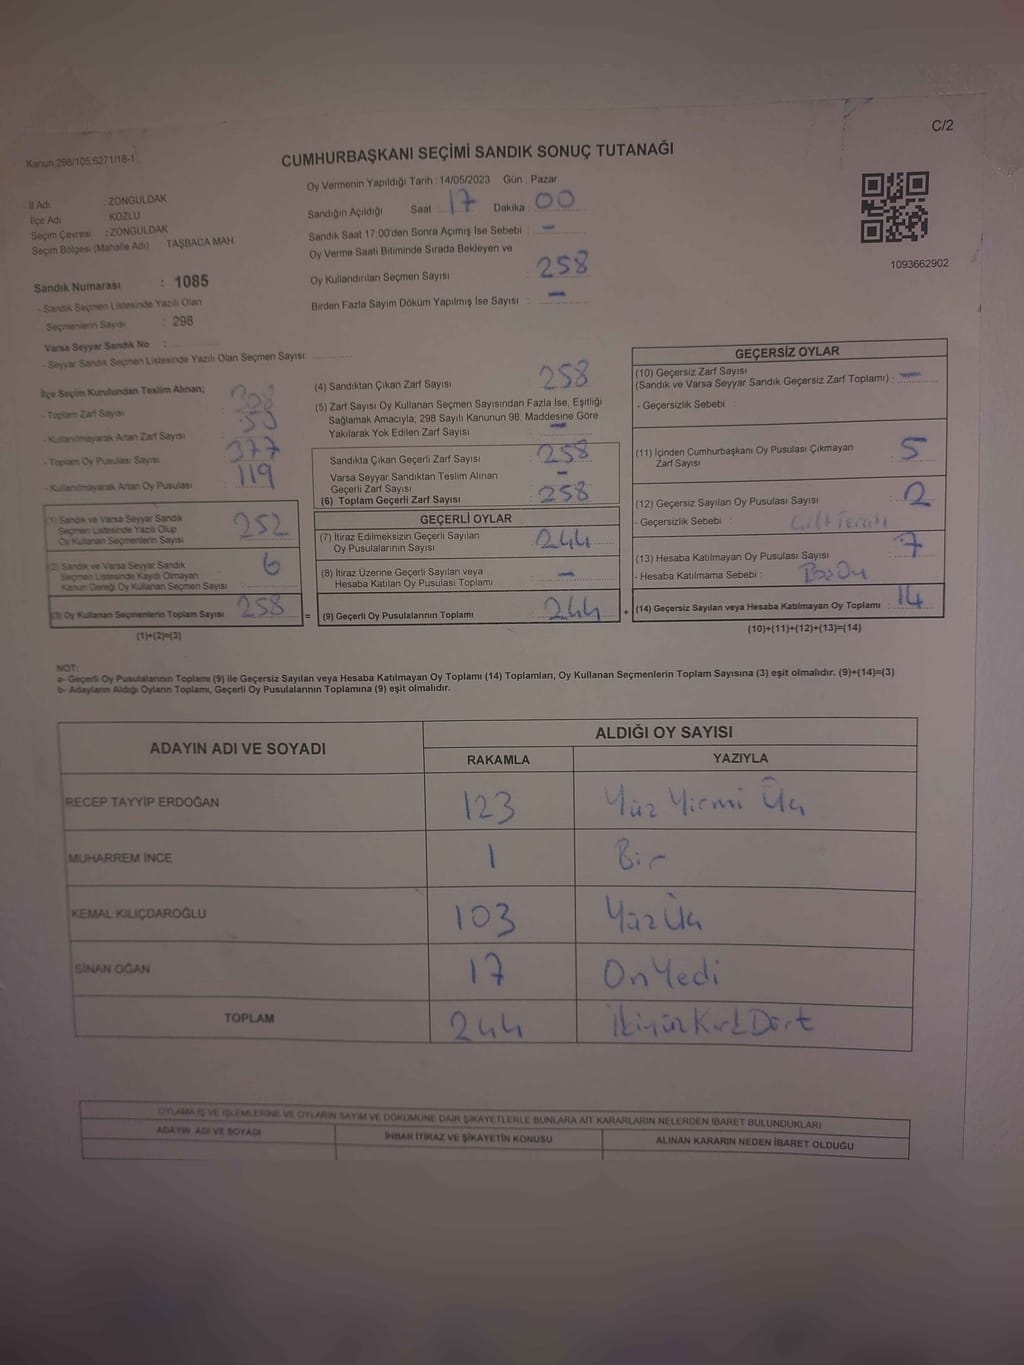 C/2
Kanun:298/105;6271/18-1
CUMHURBAŞKANI SEÇİMİ SANDIK SONUÇ TUTANAĞI
İl Adı : ZONGULDAK
İlçe Adı : KOZLU
Seçim Çevresi : ZONGULDAK
Seçim Bölgesi (Mahalle Adı) TAŞBACA MAH.
Oy Vermenin Yapıldığı Tarih : 14/05/2023 Gün : Pazar
Sandığın Açıldığı Saat 17 Dakika 00
Sandık Saat 17:00'den Sonra Açımış İse Sebebi : -
Oy Verme Saati Bitiminde Sırada Bekleyen ve
Oy Kullandırılan Seçmen Sayısı : 258
Birden Fazla Sayım Döküm Yapılmış İse Sayısı : -
1093662902
Sandık Numarası : 1085
- Sandık Seçmen Listesinde Yazılı Olan
Seçmenlerin Sayısı : 298
Varsa Seyyar Sandık No :
- Seyyar Sandık Seçmen Listesinde Yazılı Olan Seçmen Sayısı:
İlçe Seçim Kurulundan Teslim Alınan;
- Toplam Zarf Sayısı : 308
- Kullanılmayarak Artan Zarf Sayısı :
- Toplam Oy Pusulası Sayısı : 377
- Kullanılmayarak Artan Oy Pusulası : 119
(1) Sandık ve Varsa Seyyar Sandık
Seçmen Listesinde Yazılı Olup
Oy Kullanan Seçmenlerin Sayısı : 252
(2) Sandık ve Varsa Seyyar Sandık
Seçmen Listesinde Kaydı Olmayan
Kanun Gereği Oy Kullanan Seçmen Sayısı : 6
(3) Oy Kullanan Seçmenlerin Toplam Sayısı : 258
(1)+(2)=(3)
(4) Sandıktan Çıkan Zarf Sayısı : 258
(5) Zarf Sayısı Oy Kullanan Seçmen Sayısından Fazla İse, Eşitliği
Sağlamak Amacıyla; 298 Sayılı Kanunun 98. Maddesine Göre
Yakılarak Yok Edilen Zarf Sayısı : -
Sandıkta Çıkan Geçerli Zarf Sayısı : 258
Varsa Seyyar Sandıktan Teslim Alınan
Geçerli Zarf Sayısı : -
(6) Toplam Geçerli Zarf Sayısı : 258
GEÇERLİ OYLAR
(7) İtiraz Edilmeksizin Geçerli Sayılan
Oy Pusulalarının Sayısı : 244
(8) İtiraz Üzerine Geçerli Sayılan veya
Hesaba Katılan Oy Pusulası Toplamı : -
= (9) Geçerli Oy Pusulalarının Toplamı : 244 +
GEÇERSİZ OYLAR
(10) Geçersiz Zarf Sayısı
(Sandık ve Varsa Seyyar Sandık Geçersiz Zarf Toplamı) : -
- Geçersizlik Sebebi :
(11) İçinden Cumhurbaşkanı Oy Pusulası Çıkmayan
Zarf Sayısı : 5
(12) Geçersiz Sayılan Oy Pusulası Sayısı : 2
- Geçersizlik Sebebi :
(13) Hesaba Katılmayan Oy Pusulası Sayısı : 7
- Hesaba Katılmama Sebebi : Boş Oy
(14) Geçersiz Sayılan veya Hesaba Katılmayan Oy Toplamı : 14
(10)+(11)+(12)+(13)=(14)
NOT:
a- Geçerli Oy Pusulalarının Toplamı (9) ile Geçersiz Sayılan veya Hesaba Katılmayan Oy Toplamı (14) Toplamları, Oy Kullanan Seçmenlerin Toplam Sayısına (3) eşit olmalıdır. (9)+(14)=(3)
b- Adayların Aldığı Oyların Toplamı, Geçerli Oy Pusulalarının Toplamına (9) eşit olmalıdır.
ADAYIN ADI VE SOYADI ALDIĞI OY SAYISI
RAKAMLA YAZIYLA
RECEP TAYYİP ERDOĞAN 123 Yüz Yirmi Üç
MUHARREM İNCE 1 Bir
KEMAL KILIÇDAROĞLU 103 Yüz Üç
SİNAN OĞAN 17 On Yedi
TOPLAM 244 İkiyüz Kırk Dört
OYLAMA İŞ VE İŞLEMLERİNE VE OYLARIN SAYIM VE DÖKÜMÜNE DAİR ŞİKAYETLERLE BUNLARA AİT KARARLARIN NELERDEN İBARET BULUNDUKLARI
ADAYIN ADI VE SOYADI İHBAR İTİRAZ VE ŞİKAYETİN KONUSU ALINAN KARARIN NEDEN İBARET OLDUĞU